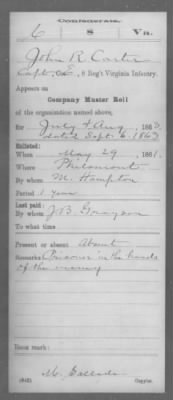 Confederate.
6 8 Va.
John R Carter
Capt, Co. , 8 Reg't Virginia Infantry.
Appears on
Company Muster Roll
of the organization named above,
for July & Aug, 1863.
dated Sept. 6, 1863
Enlisted:
When May 29, 1861.
Where Philomont
By whom M. Hampton
Period 1 year
Last paid:
By whom J.B. Grayson
To what time
Present or absent Absent
Remarks: Prisoner in the hands
of the enemy
Book mark:
(642) Copyist.